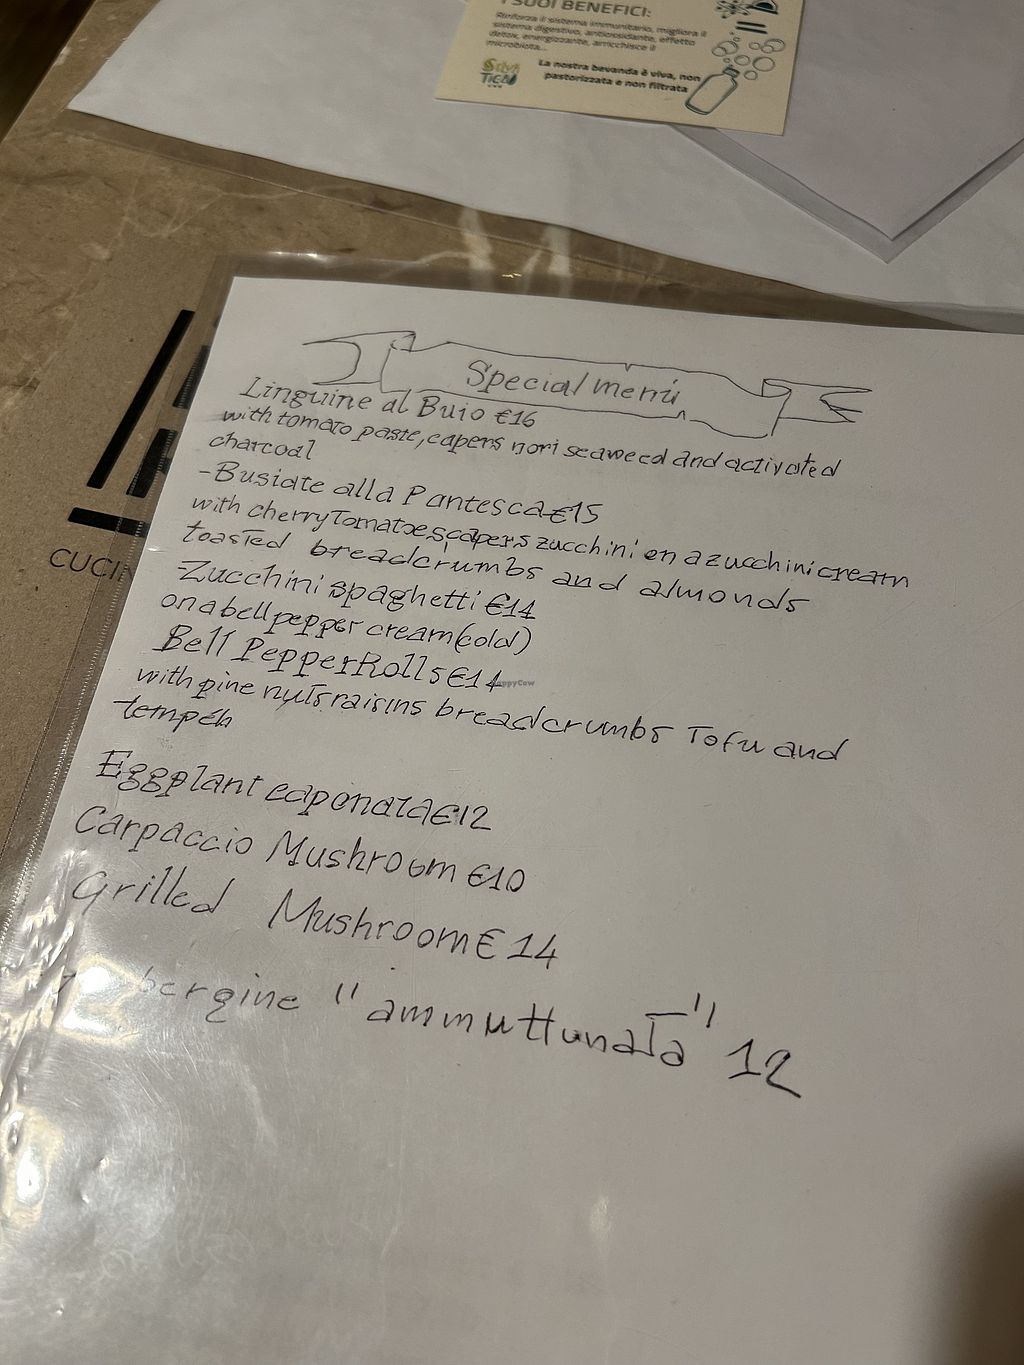 I SUOI BENEFICI:
Rinforza il sistema immunitario, migliora il
sistema digestivo, antiossidante, effetto
detox, energizzante, arricchisce il
microbiota...
La nostra bevanda è viva, non
pastorizzata e non filtrata
Special menù
Linguine al Buio €16
with tomato paste, capers nori seaweed and activated
charcoal
-Busiate alla Pantesca €15
with cherry Tomatoes capers zucchini on a zucchini cream
toasted breadcrumbs and almonds
-Zucchini spaghetti €14
on a bell pepper cream (cold)
Bell Pepper Rolls €14
with pine nuts raisins breadcrumbs Tofu and
tempeh
Eggplant caponata €12
Carpaccio Mushroom €10
Grilled Mushroom € 14
"ammuttunata" 12
CUCIN
HappyCow